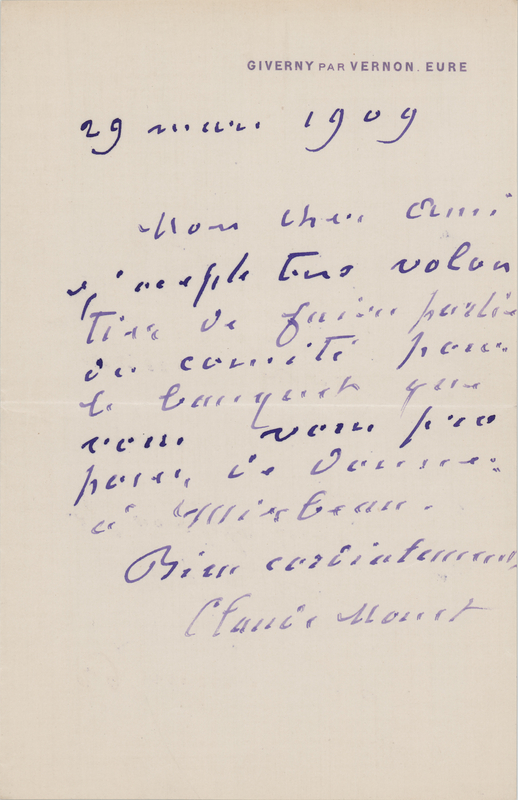 GIVERNY PAR VERNON. EURE
29 mars 1909
Mon cher ami
j'accepte très volon
tiers de faire partie
du comité pour
le banquet que
vous vous pro
posez de donner
à Mirbeau.
Bien cordialement
Claude Monet